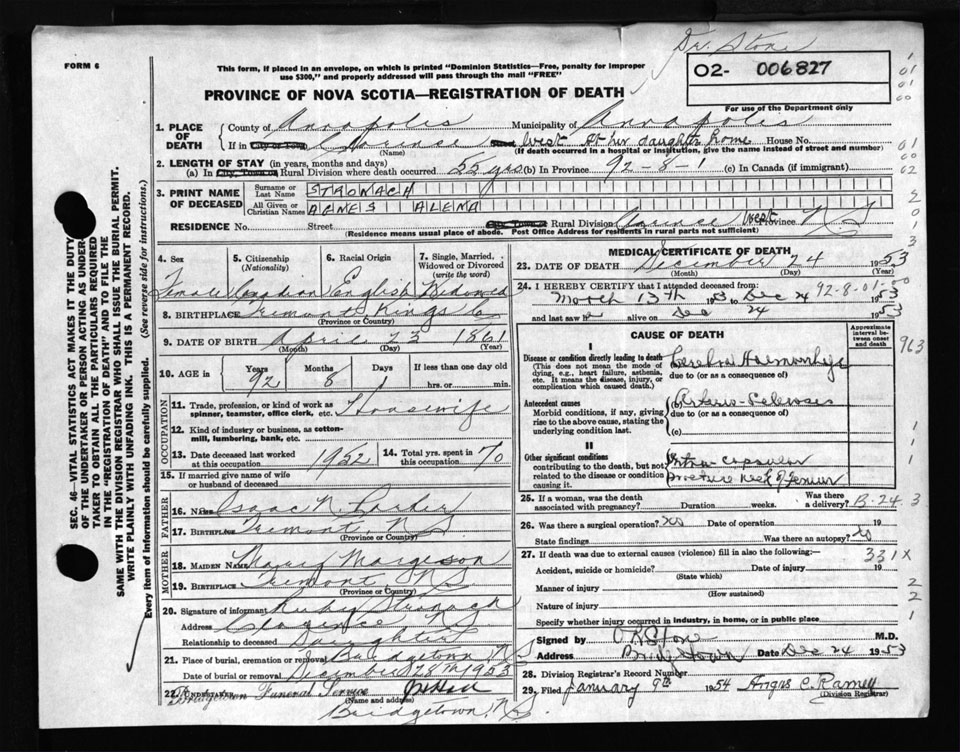 Dr. Stone
FORM 6
This form, if placed in an envelope, on which is printed "Dominion Statistics—Free, penalty for improper
use $300," and properly addressed will pass through the mail "FREE"
02- 006827
For use of the Department only
PROVINCE OF NOVA SCOTIA—REGISTRATION OF DEATH
1. PLACE OF DEATH
County of Annapolis Municipality of Annapolis
If in City or Town Clarence West At her daughter home House No.
(Name) (If death occurred in a hospital or institution, give the name instead of street and number)
2. LENGTH OF STAY (in years, months and days)
(a) In City, Town or Rural Division where death occurred 55 yrs (b) In Province 92 - 8 - 1 (c) In Canada (if immigrant)
3. PRINT NAME OF DECEASED
Surname or Last Name STRONACH
All Given or Christian Names AGNES ALEMA
RESIDENCE No. Street City, Town or Rural Division Clarence West Province N S
(Residence means usual place of abode. Post Office Address for residents in rural parts not sufficient)
4. Sex Female
5. Citizenship (Nationality) Canadian
6. Racial Origin English
7. Single, Married, Widowed or Divorced (write the word) Widowed
8. BIRTHPLACE Tremont, Kings Co
(Province or Country)
9. DATE OF BIRTH April 23 1861
(Month) (Day) (Year)
10. AGE in Years 92 Months 8 Days 1 If less than one day old
hrs. or min.
OCCUPATION
11. Trade, profession, or kind of work as spinner, teamster, office clerk, etc. Housewife
12. Kind of industry or business, as cotton-mill, lumbering, bank, etc.
13. Date deceased last worked at this occupation 1952
14. Total yrs. spent in this occupation 70
15. If married give name of wife or husband of deceased
FATHER
16. Name Isaac N. Parker
17. Birthplace Tremont, N S
(Province or Country)
MOTHER
18. MAIDEN NAME Mary Margeson
19. BIRTHPLACE Tremont N S
(Province or Country)
20. Signature of informant Ruby Stronach
Address Clarence N S
Relationship to deceased Daughter
21. Place of burial, cremation or removal Bridgetown N S
Date of burial or removal December 28TH 1953
22. UNDERTAKER Bridgetown Funeral Service
(Name and address)
Bridgetown, N S
MEDICAL CERTIFICATE OF DEATH
23. DATE OF DEATH December 24 1953
(Month) (Day) (Year)
24. I HEREBY CERTIFY that I attended deceased from:
March 13th 1953 to Dec 24 1953
92-8-01-50
and last saw h alive on Dec 24 1953
CAUSE OF DEATH
Approximate interval between onset and death
963
I
Disease or condition directly leading to death
(This does not mean the mode of dying, e.g., heart failure, asthenia, etc. It means the disease, injury, or complication which caused death.)
(a) Cerebral Haemorrhage
due to (or as a consequence of)
Antecedent causes
Morbid conditions, if any, giving rise to the above cause, stating the underlying condition last.
(b) Arterio-Sclerosis
due to (or as a consequence of)
(c)
II
Other significant conditions contributing to the death, but not related to the disease or condition causing it.
Intra capsular
fracture neck of femur
25. If a woman, was the death associated with pregnancy? Duration weeks. Was there a delivery? B-24.3
26. Was there surgical operation? No Date of operation 19
State findings Was there an autopsy? No
27. If death was due to external causes (violence) fill in also the following:—
331X
Accident, suicide or homicide? Date of injury 19
(State which)
Manner of injury
(How sustained)
Nature of injury
Specify whether injury occurred in industry, in home, or in public place
Signed by M.D.
Address Bridgetown Date Dec 24 1953
28. Division Registrar's Record Number
29. Filed January 9th 1954 Angus C. Ramey
(Division Registrar)
SEC. 46—VITAL STATISTICS ACT MAKES IT THE DUTY
OF THE UNDERTAKER OR PERSON ACTING AS UNDER-
TAKER TO OBTAIN ALL THE PARTICULARS REQUIRED
IN THE "REGISTRATION OF DEATH" AND TO FILE THE
SAME WITH THE DIVISION REGISTRAR WHO SHALL ISSUE THE BURIAL PERMIT.
WRITE PLAINLY WITH UNFADING INK. THIS IS A PERMANENT RECORD.
Every item of information should be carefully supplied. (See reverse side for instructions.)